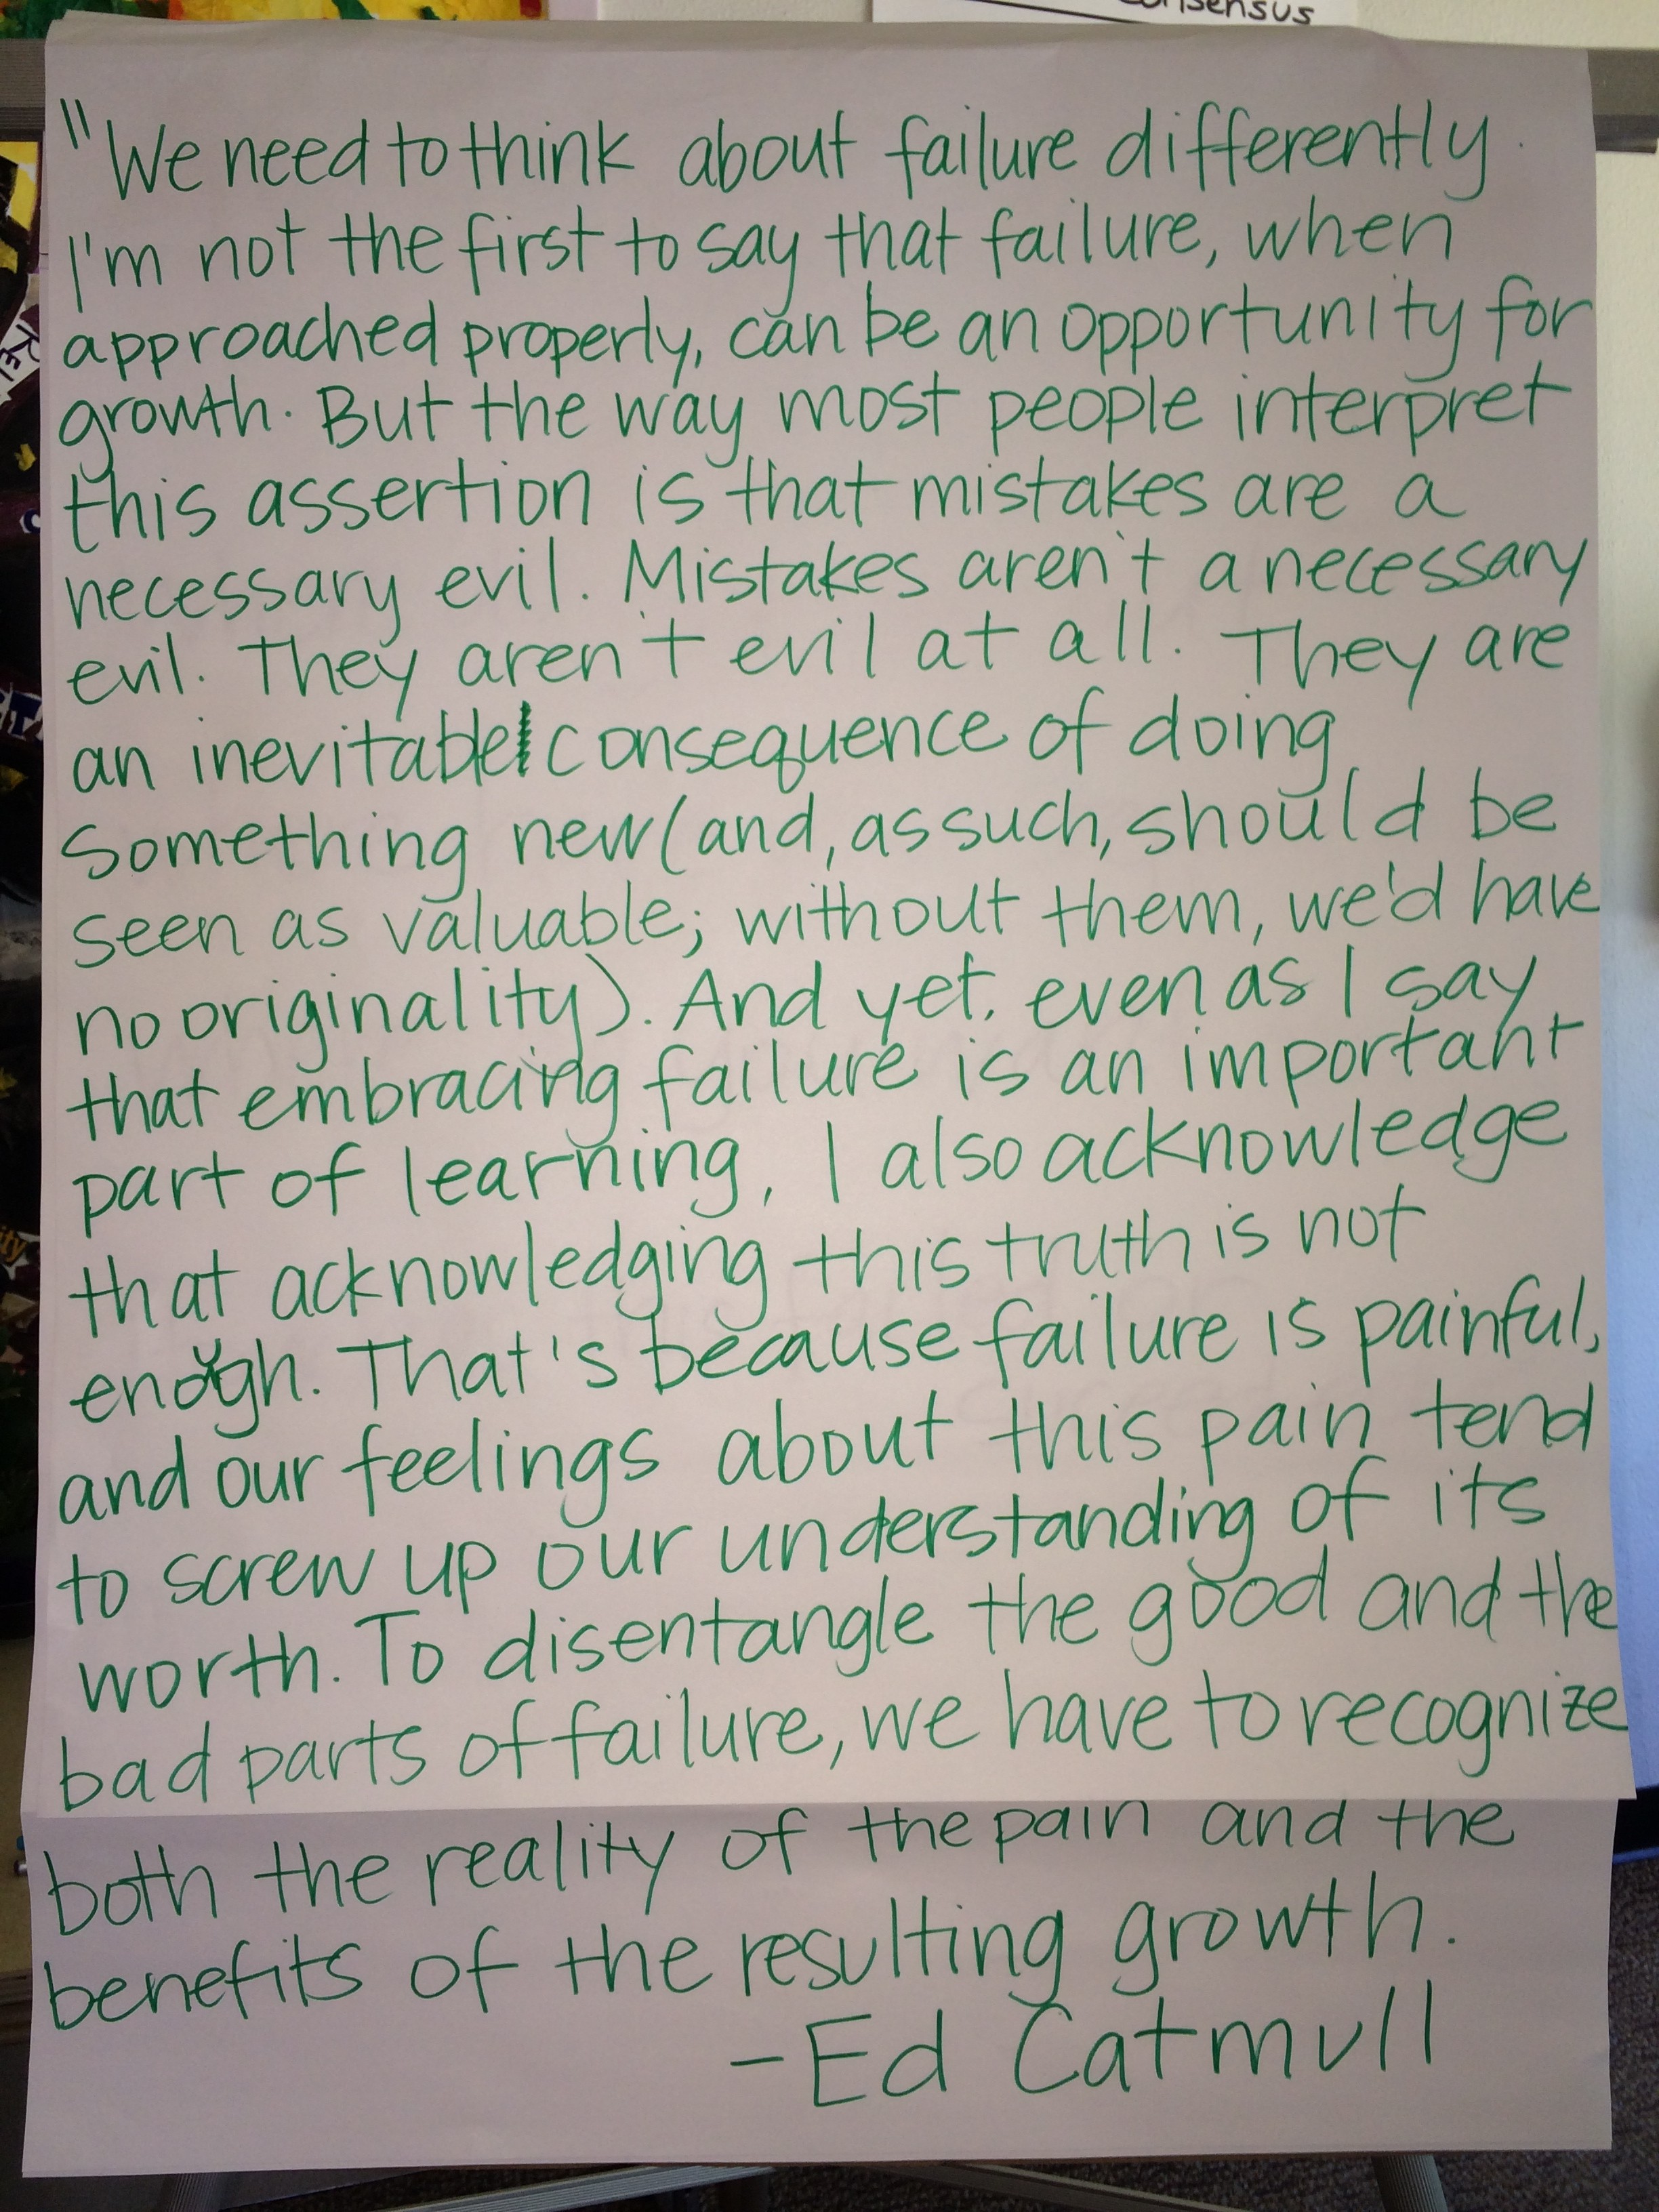 onsensus
"We need to think about failure differently.
I'm not the first to say that failure, when
approached properly, can be an opportunity for
growth. But the way most people interpret
this assertion is that mistakes are a
necessary evil. Mistakes aren't a necessary
evil. They aren't evil at all. They are
an inevitable consequence of doing
something new (and, as such, should be
seen as valuable; without them, we'd have
no originality). And yet, even as I say
that embracing failure is an important
part of learning, I also acknowledge
that acknowledging this truth is not
enough. That's because failure is painful,
and our feelings about this pain tend
to screw up our understanding of its
worth. To disentangle the good and the
bad parts of failure, we have to recognize
both the reality of the pain and the
benefits of the resulting growth.
-Ed Catmull